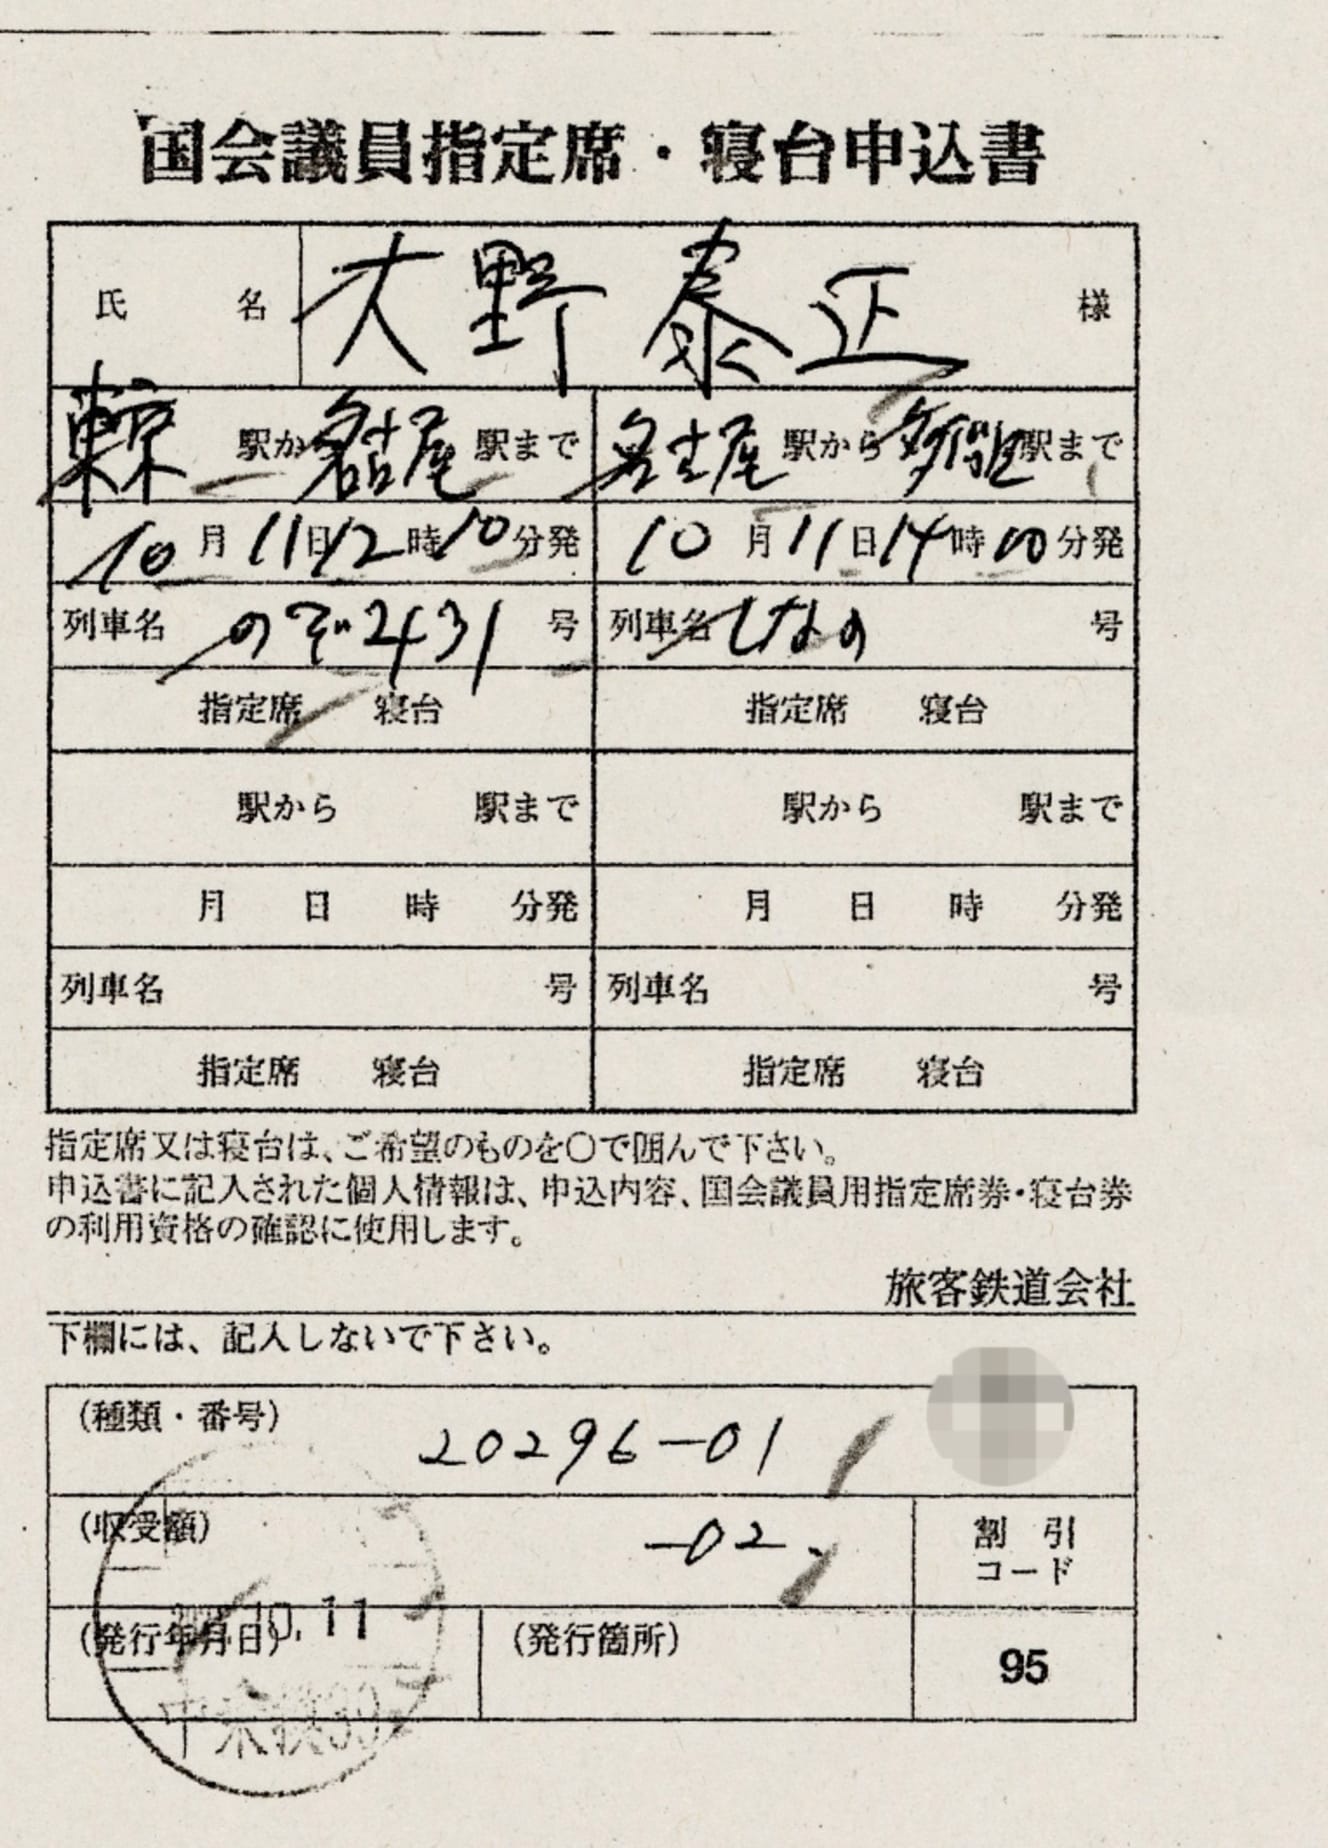 国会議員指定席・寝台申込書
氏 名 大野泰正 様
東京駅から名古屋駅まで 名古屋駅から多治見駅まで
10月11日12時10分発 10月11日14時00分発
列車名 のぞ2431号 列車名 しなの 号
指定席 寝台 指定席 寝台
駅から 駅まで 駅から 駅まで
月 日 時 分発 月 日 時 分発
列車名 号 列車名 号
指定席 寝台 指定席 寝台
指定席又は寝台は、ご希望のものを〇で囲んで下さい。
申込書に記入された個人情報は、申込内容、国会議員用指定席券・寝台券
の利用資格の確認に使用します。
旅客鉄道会社
下欄には、記入しないで下さい。
(種類・番号) 20296-01
(収受額) -02 割引
コード
(発行年月日) 10.11 (発行箇所) 95